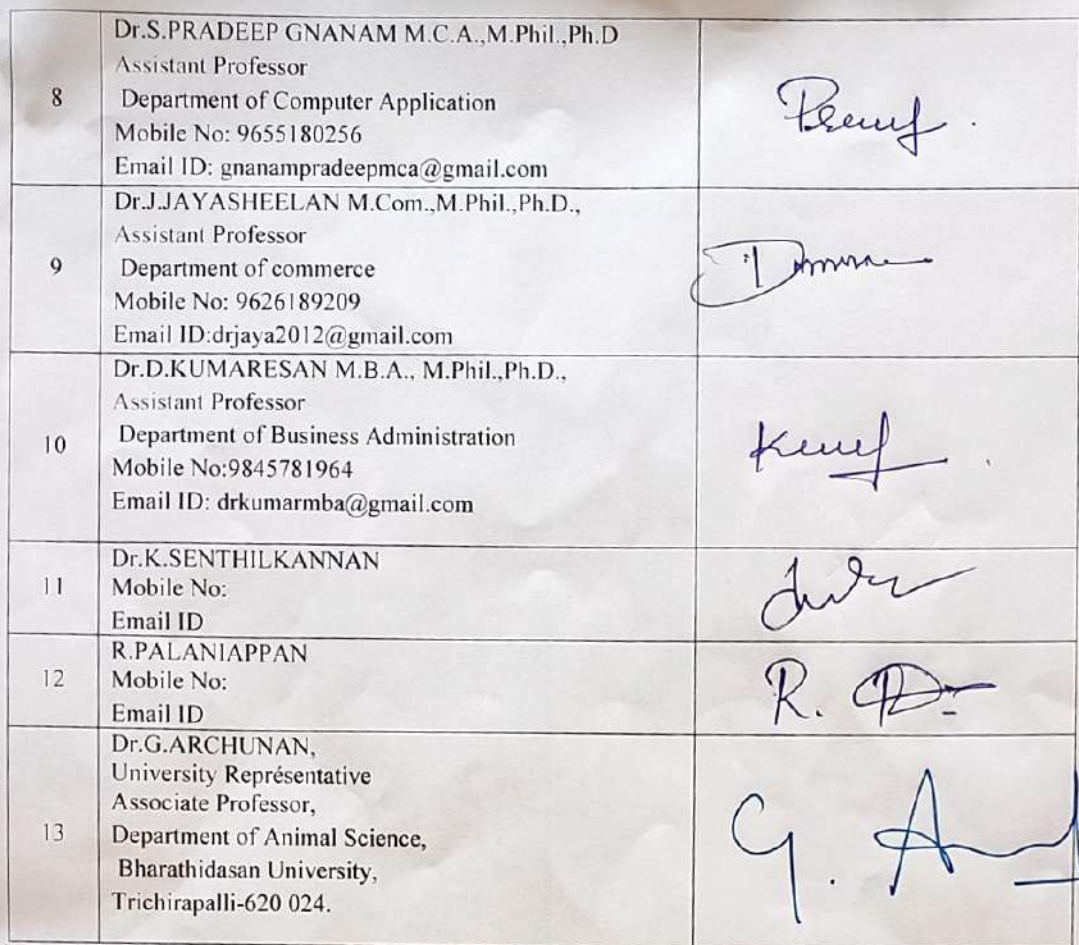 8
Dr.S.PRADEEP GNANAM M.C.A.,M.Phil.,Ph.D
Assistant Professor
Department of Computer Application
Mobile No: 9655180256
Email ID: gnanampradeepmca@gmail.com
9
Dr.J.JAYASHEELAN M.Com.,M.Phil.,Ph.D.,
Assistant Professor
Department of commerce
Mobile No: 9626189209
Email ID:drjaya2012@gmail.com
10
Dr.D.KUMARESAN M.B.A., M.Phil.,Ph.D.,
Assistant Professor
Department of Business Administration
Mobile No:9845781964
Email ID: drkumarmba@gmail.com
11
Dr.K.SENTHILKANNAN
Mobile No:
Email ID
12
R.PALANIAPPAN
Mobile No:
Email ID
R.
13
Dr.G.ARCHUNAN,
University Représentative
Associate Professor,
Department of Animal Science,
Bharathidasan University,
Trichirapalli-620 024.
G.